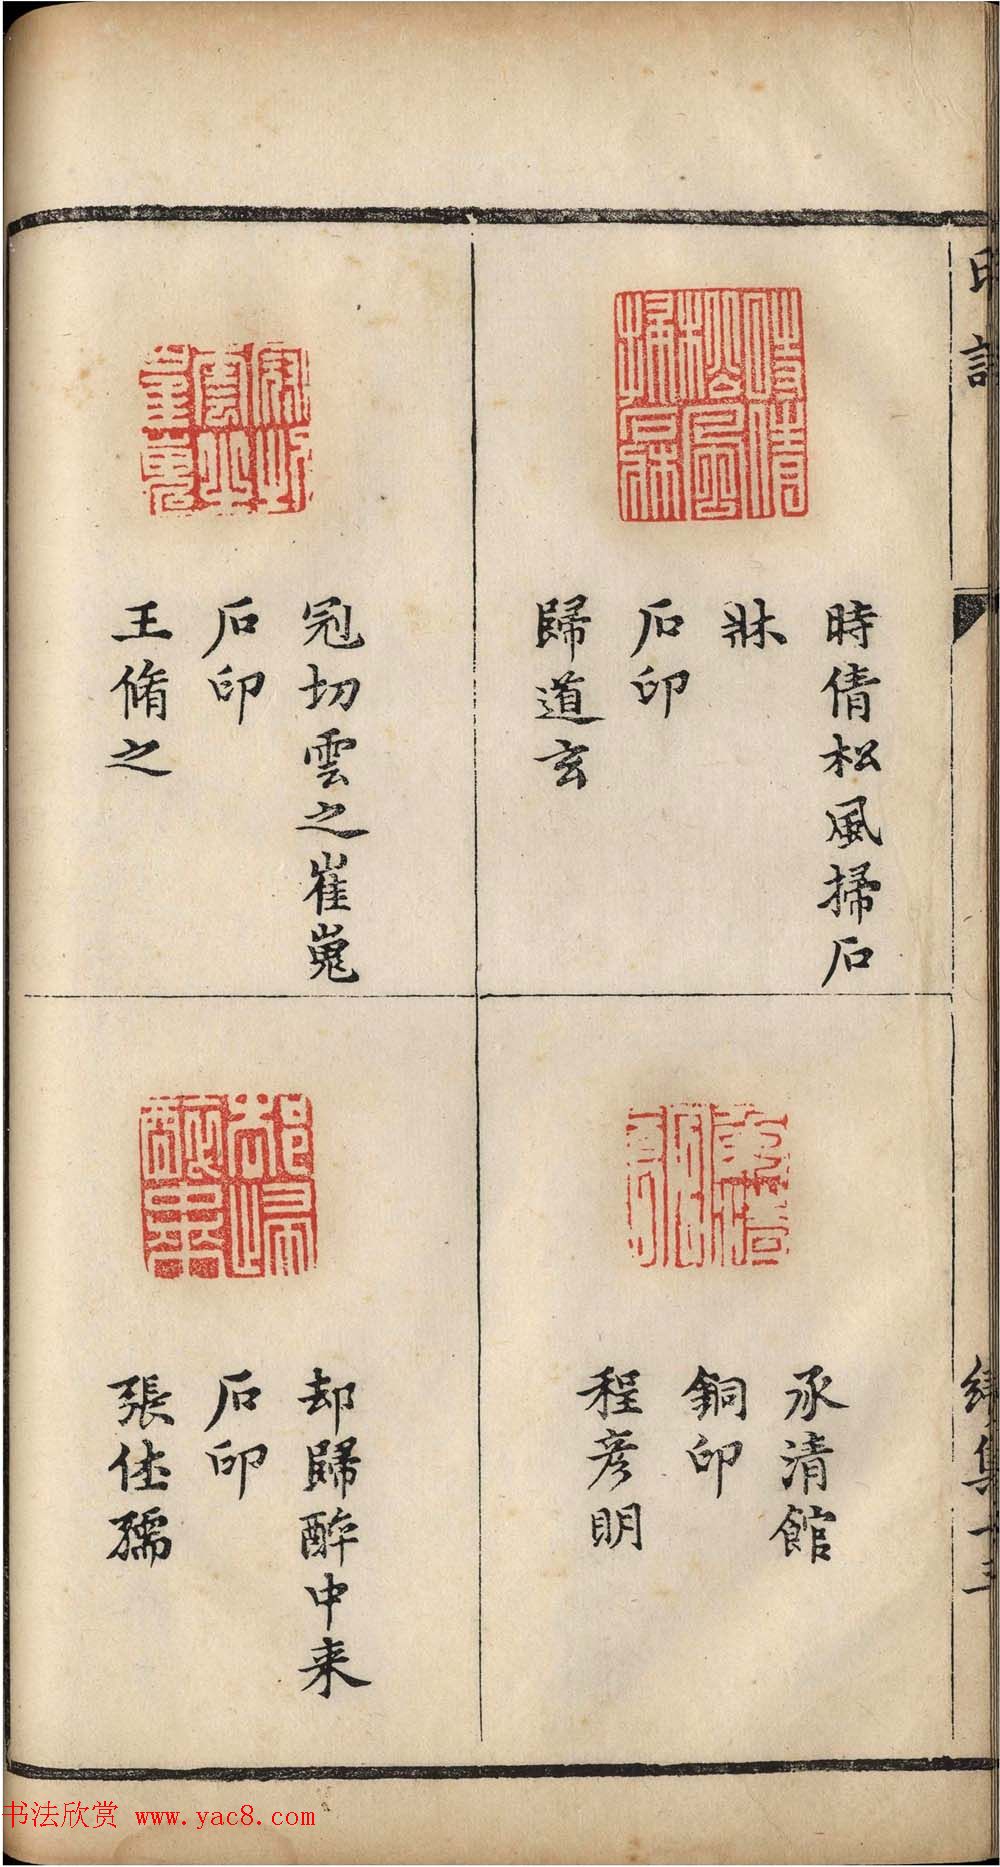 時倩松風掃石
牀
石印
歸道玄
冠切雲之崔嵬
石印
王脩之
承清館
銅印
程彥明
却歸醉中来
石印
張仕孺
書法欣赏 www.yac8.com